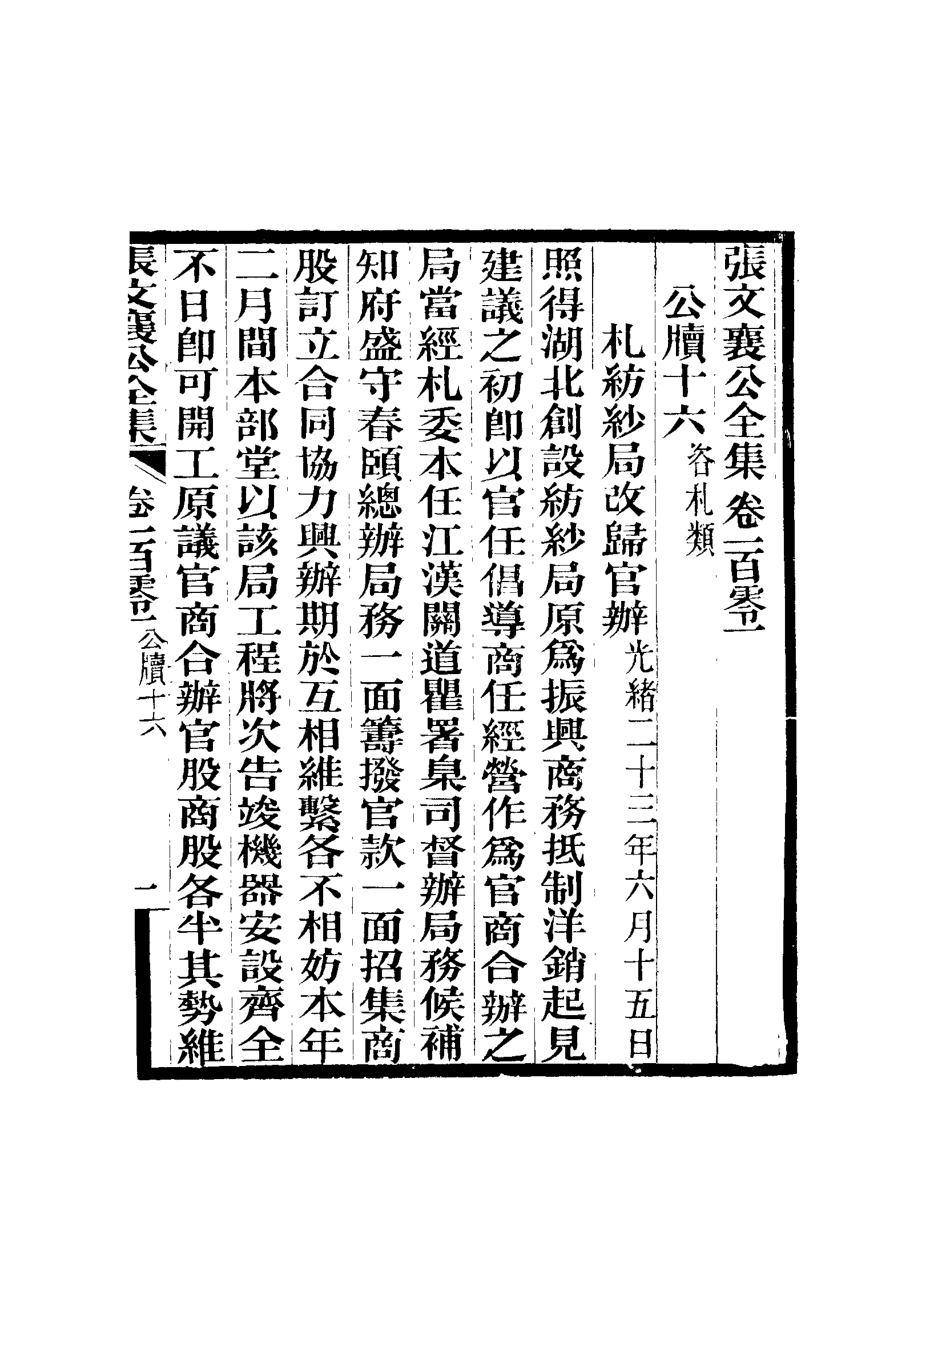 張文襄公全集卷一百零一
公牘十六咨札類
札紡紗局改歸官辦光緒二十三年六月十五日
照得湖北創設紡紗局原爲振興商務抵制洋銷起見
建議之初卽以官任倡導商任經營作爲官商合辦之
局當經札委本任江漢關道瞿署臬司督辦局務候補
知府盛守春頤總辦局務一面籌撥官款一面招集商
股訂立合同協力興辦期於互相維繫各不相妨本年
二月間本部堂以該局工程將次告竣機器安設齊全
不日卽可開工原議官商合辦官股商股各半其勢維
張文襄公全集 卷一百零一 公牘十六 一